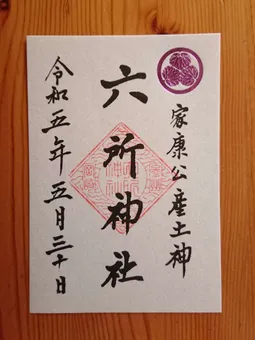 家康公産土神
六所神社
令和五年五月三十日